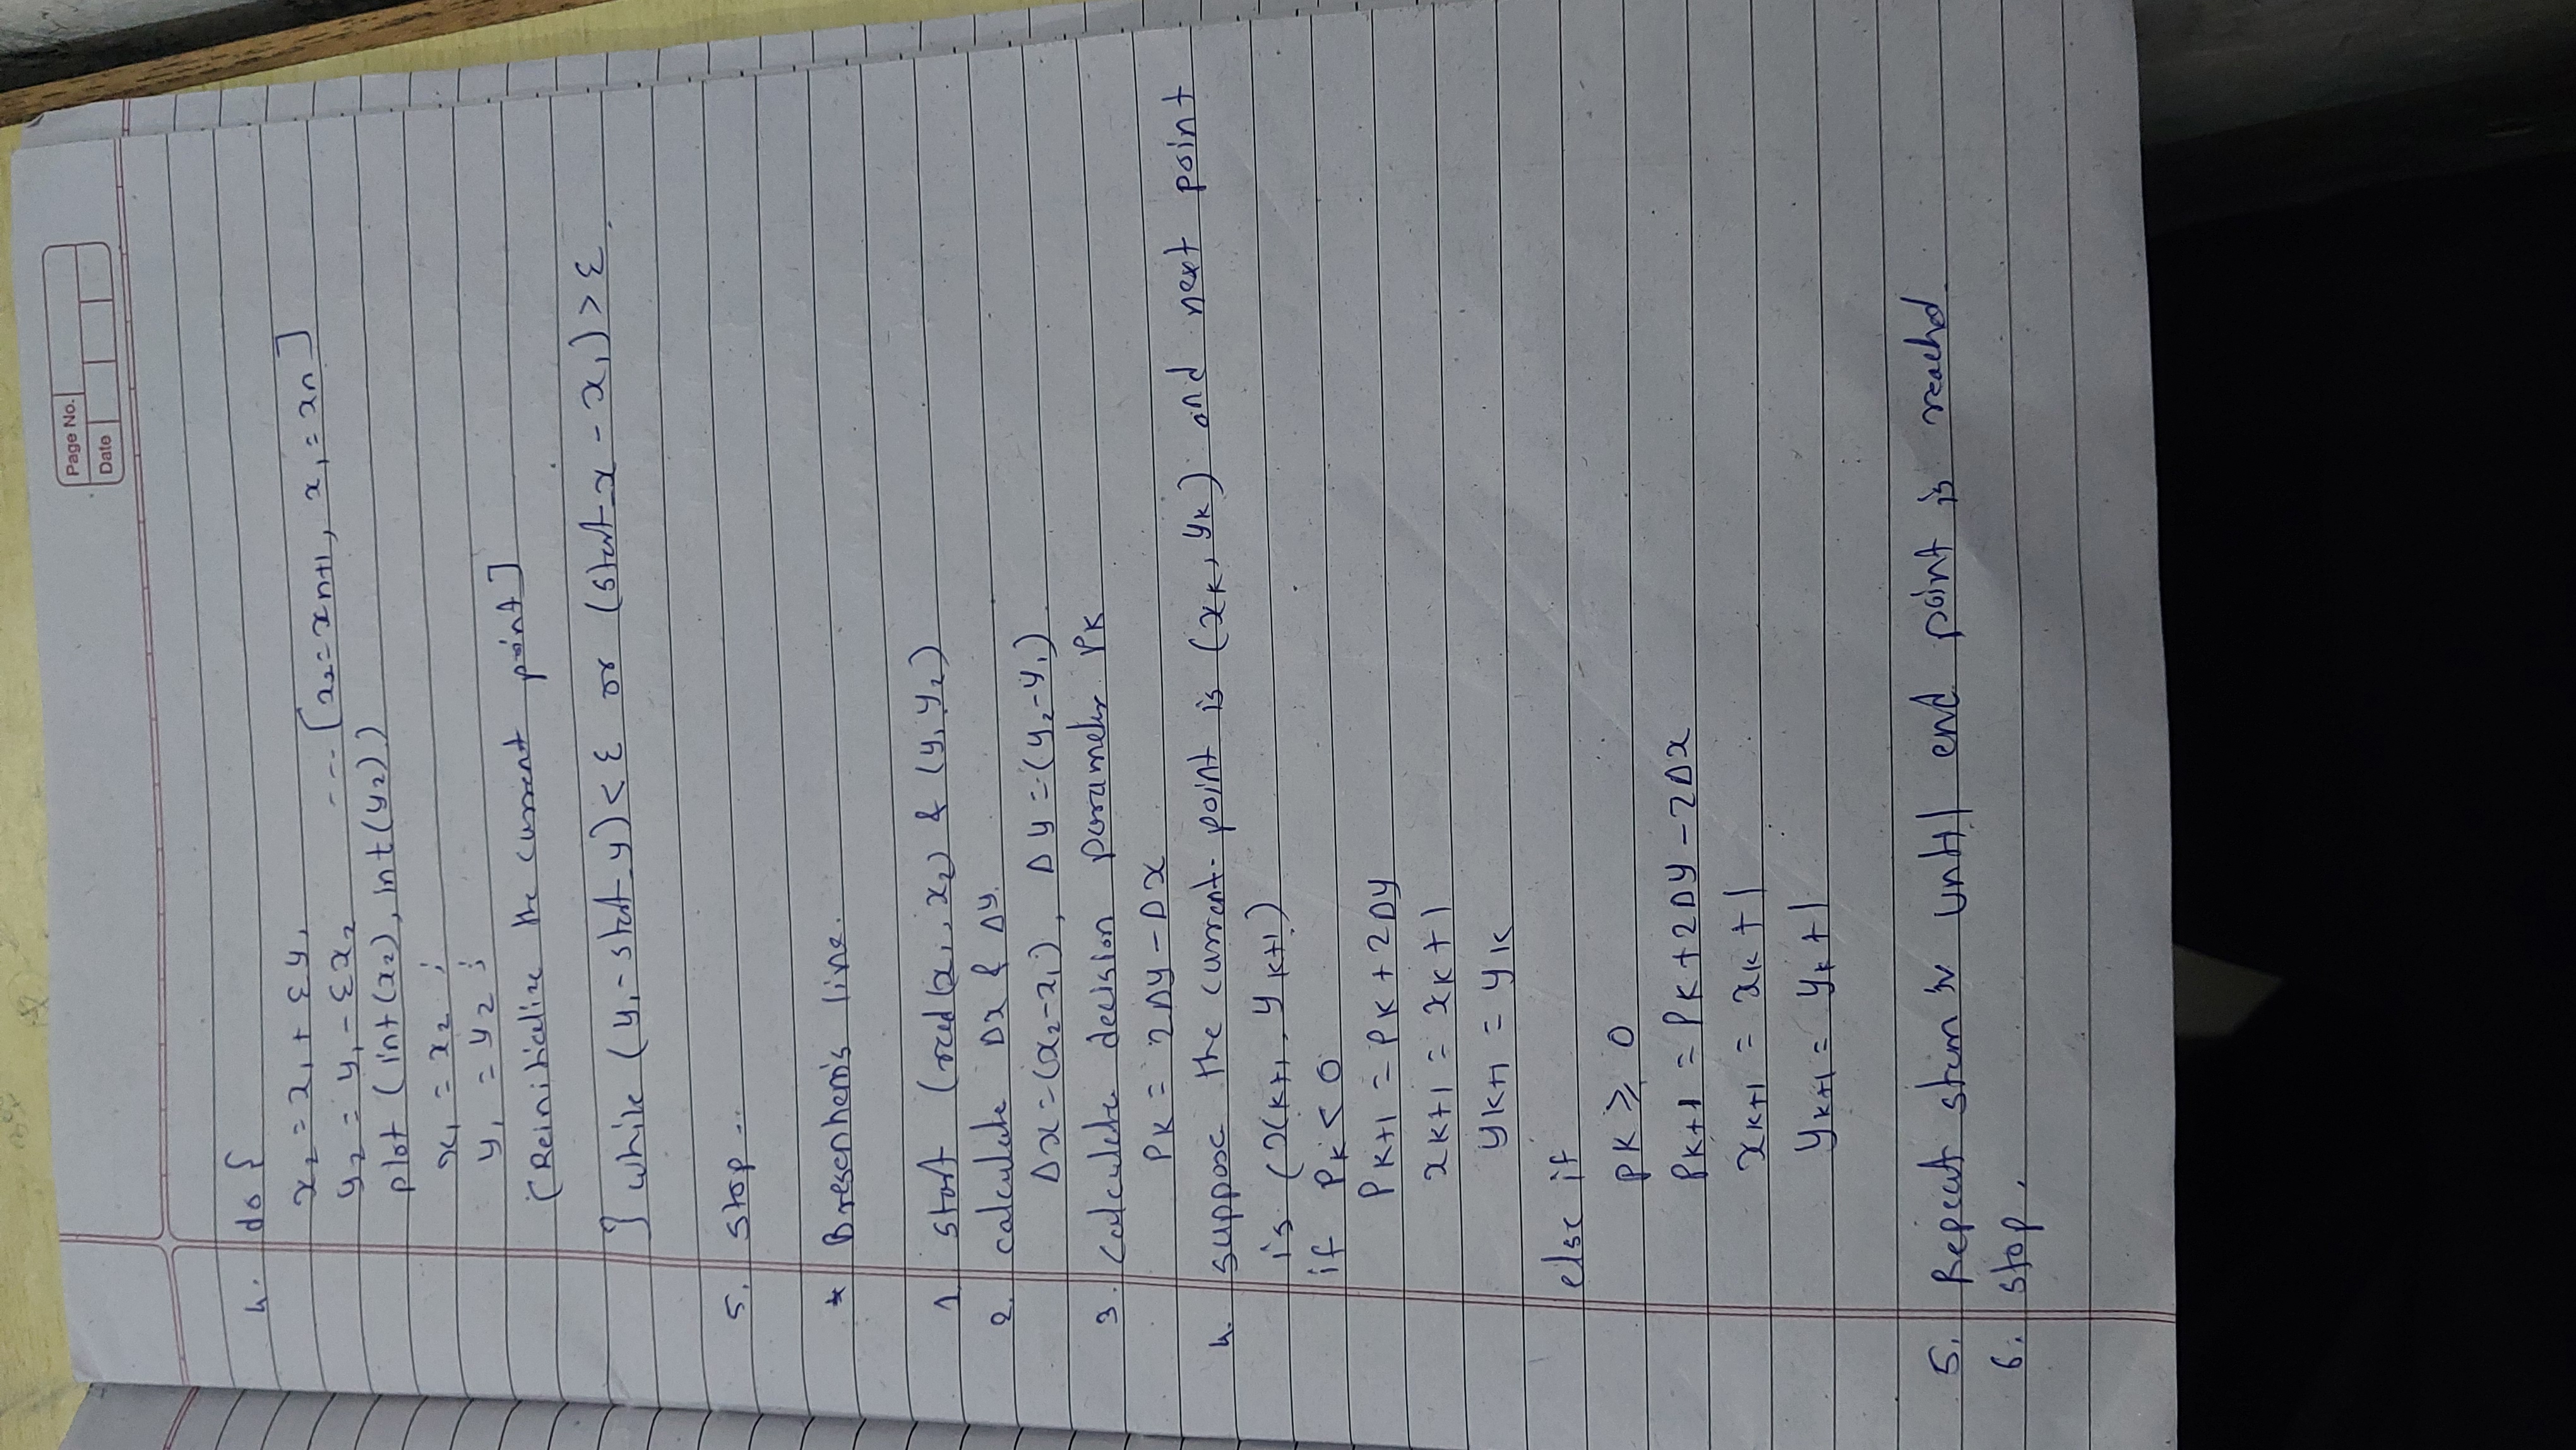 Page No.
Date
4. do {
x₂ = x₁ + εy₁
y₂ = y₁ - εx₂ --- [x₂ = xn+1, x₁ = xn]
plot (int(x₂), int(y₂))
x₁ = x₂ ;
y₁ = y₂ ;
[Reinitialize the current point]
} while (y₁ - start y) < ε or (start x - x₁) > ε
5. stop ..
* Bresenham's line.
1. start (read (x₁, x₂) & (y₁ y₂)
2. calculate Δx & Δy.
Δx = (x₂-x₁), Δy = (y₂-y₁)
3. calculate decision parameter PK
PK = 2Δy - Δx
4. suppose the current point is (xK, yK) and next point
is (xK+1, yK+1)
if PK < 0
PK+1 = PK + 2Δy
xK+1 = xK + 1
yK+1 = yK
else if
PK ≥ 0
PK+1 = PK + 2Δy - 2Δx
xK+1 = xK + 1
yK+1 = yK + 1
5. Repeat until end point is reached
6. stop.